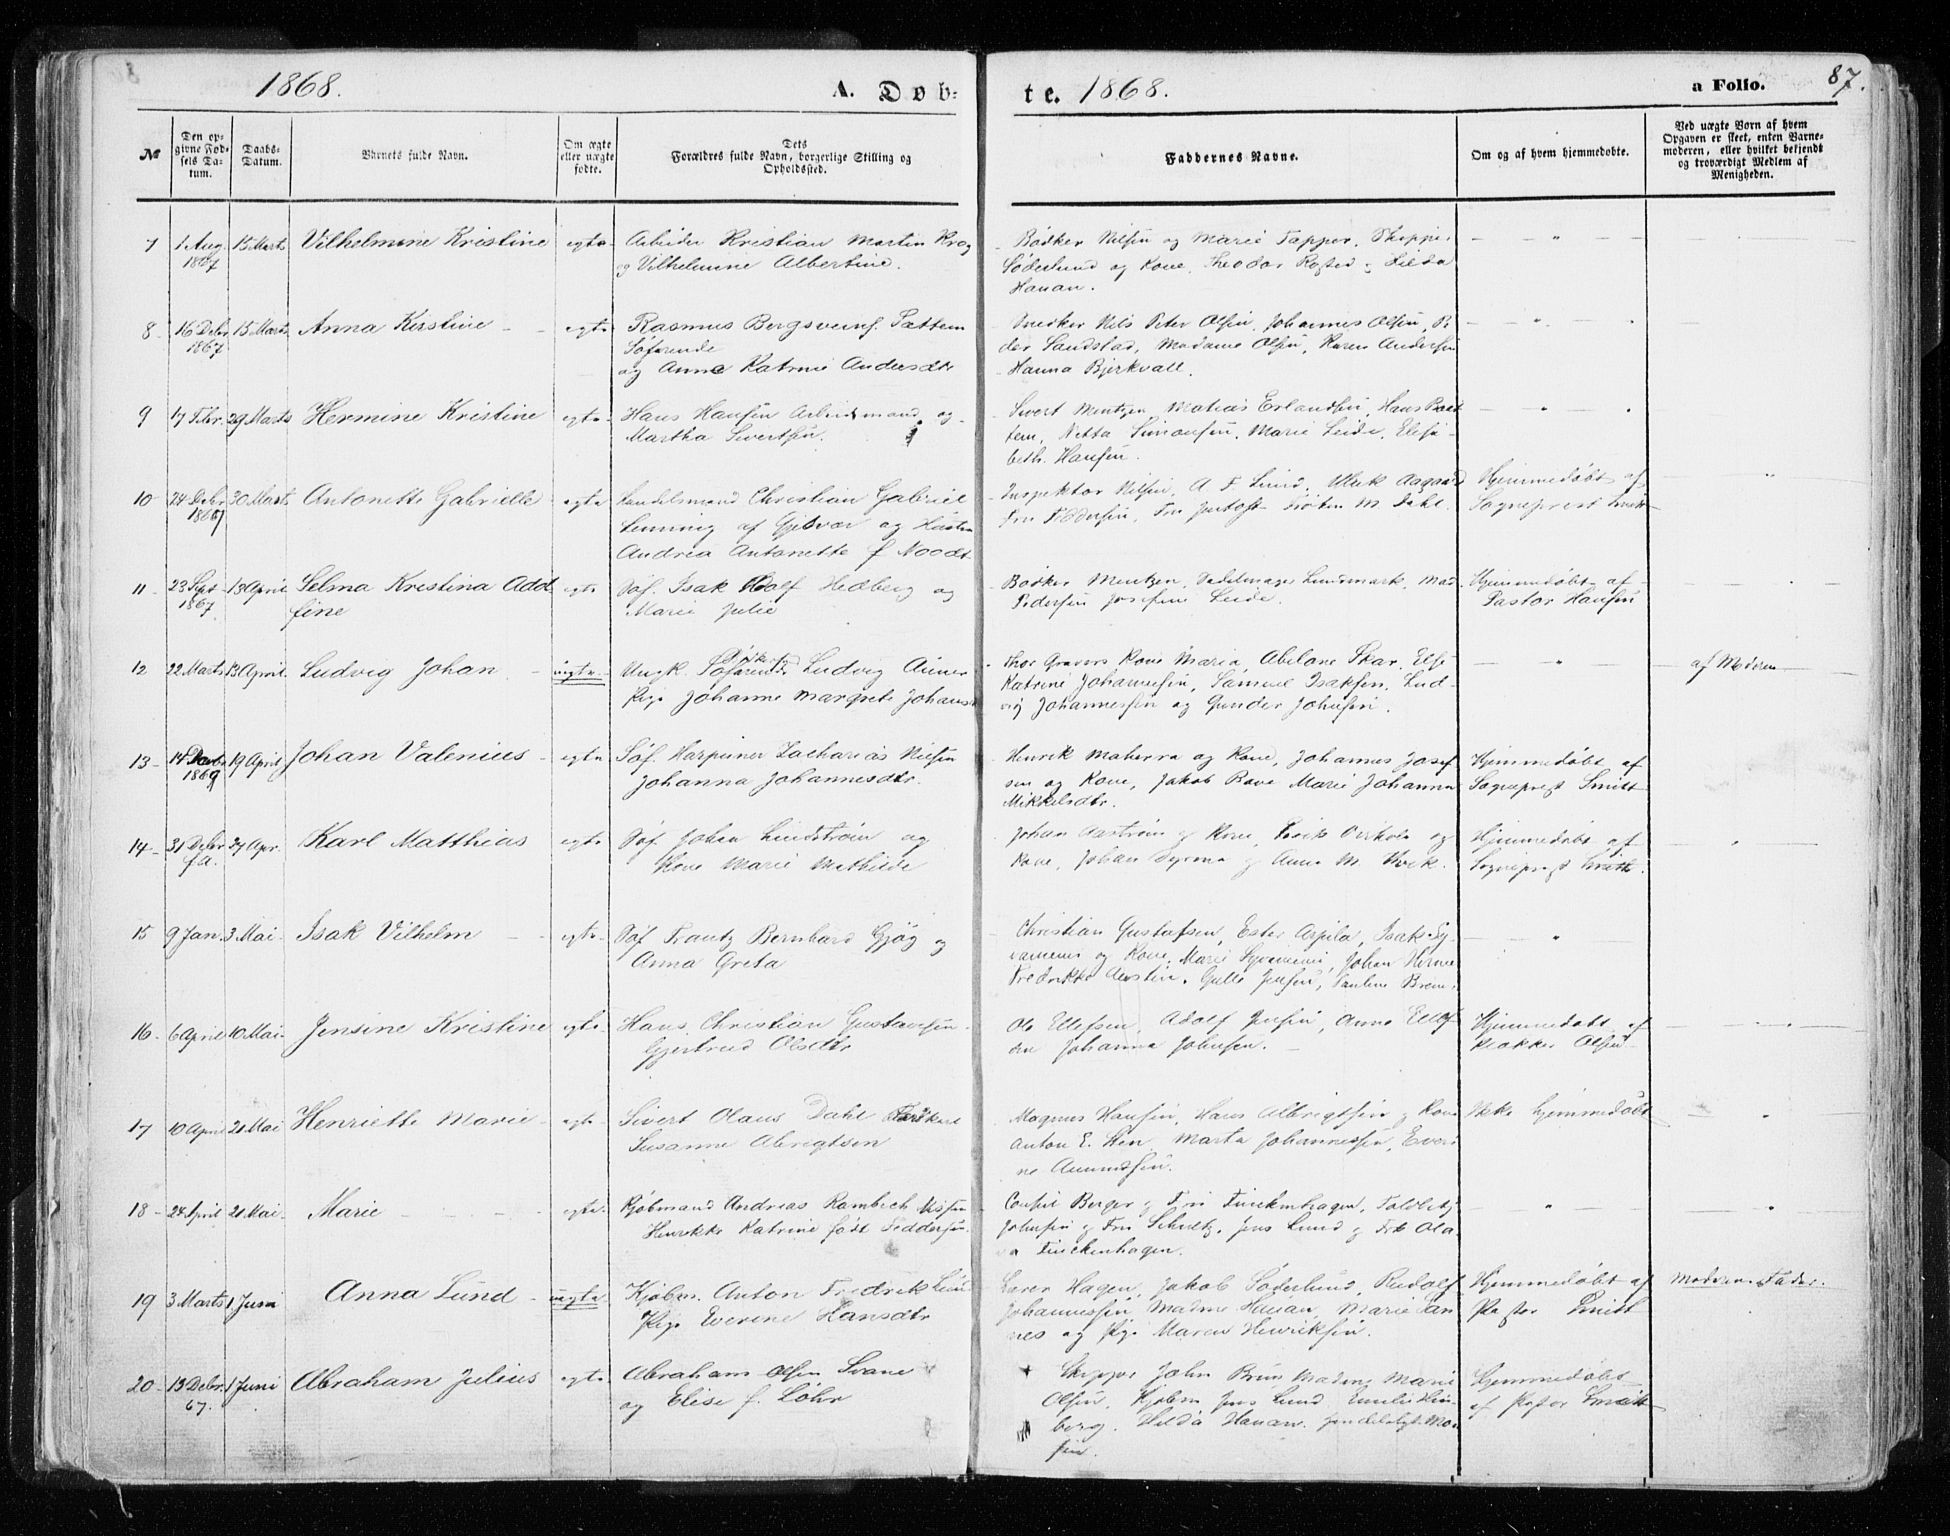 1868. A. Døb-
te. 1868. a Folio. 87.
№
Den op-
givne Fød-
sels Da-
tum.
Daabs-
Datum.
Barnets fulde Navn.
Om ægte
eller uægte
fødte.
Dets
Forældres fulde Navn, borgerlige Stilling og
Opholdssted.
Faddernes Navne.
Om og af hvem hjemmedøbte.
Ved uægte Børn af hvem
Opgaven er skeet, enten Barne-
moderen, eller hvilket bekjendt
og troværdigt Medlem af
Menigheden.
7 1 Aug. 15 Marts Vilhelmine Kristine egte Arbeider Kristian Martin Krog
1867 og Vilhelmine Albertine.
Bødker Nilsen og Marie Tapper, Skipper
Søderlund og Kone, Theodor og Hilda
Hauan.
8 16 Debr 15 Marts Anna Kirstine egte Rasmus Bergsveins.
1867 Søfarende
og Anne Katrine Andersdtr
Snedker Nils Peter Olsen, Johannes Olsen, Pe-
der Sandstad, Madame Olsen, Karen Andersen
Hanna Bjerkvall.
9 17 Febr. 29 Marts Hermine Kristine egte Hans Hansen Arbeidsmand og
Martha Sivertsen.
Sivert Mentzen, Matias Erlandsen, Hans
Netta Simonsen, Marie Leide, Elisa-
beth Hansen.
10 24 Debr 30 Marts Antonette Gabrielle egte Handelsmand Christian Gabriel
1867 af Gjesvær og Hustru
Andrea Antonette f Noodt
Inspektor Nilsen, A F Lund, Ulrik Aagaard
Fru Feddersen, Fru Frøken M Dahl.
Hjemmedøbt af
Sogneprest Smitt
11 23 Sept 13 April Selma Kristina Add egte Søf. Isak Adolf Hedberg og
1867 fine Marie Julie
Bødker Mentzen, Sadelmager Lundmark, Mad
Pedersen Josefine Leide.
Hjemmedøbt af
Pastor Hansen
12 22 Marts 13 April Ludvig Johan uegte Ungk. Søfarende Ludvig
Pige Johanne Margrete Johans
Thor Gravers Kone Maria, Abelone Skar, Else
Katrine Johannesen, Samuel Isaksen, Lud-
vig Johannessen og Gunder Johnsen.
af Moderen
13 14 19 April Johan Valenius egte Søf. Harpuner Zacharias Nilsen
Johanna Johannesdtr.
Henrik Maherra og Kone, Johannes Josef
sen og Kone, Jakob Marie Johanna
Mikkelsdtr.
Hjemmedøbt af
Sogneprest Smitt
14 31 Debr 27 Apr. Karl Matthias egte Søf Johan Lindstrøm og
f.a. Kone Marie Mathilde
Johan Aastrøm og Kone, og
Kone, Johan og Anna M.
Hjemmedøbt af
Sogneprest Smitt.
15 9 Jan. 3 Mai Isak Vilhelm egte Søf Frantz Bernhard Gjøg og
Anna Greta
Christian Gustafsen, Ester Arpila, Isak
og Kone, Marie Johan
Fredrikke Gulle Jensen, Pauline
16 6 April 10 Mai Jensine Kristine egte Hans Christian Gustavsen
Gjertrud Olsdtr
Ole Ellefsen, Adolf Jensen, Anne Ellef
sen Johanna Johnsen.
Hjemmedøbt af
Klokker Olsen
17 10 April 21 Mai Henriette Marie egte Sivert Olaus Dahl
Susanne Abrigtsen
Magnus Hansen, Hans Albrigtsen og Kone
Anton E. Sten, Marta Johannessen, Everi-
ne Amundsen.
Ikke hjemmedøbt
18 24 April 21 Mai Marie egte Kjøbmand Andreas Rambech Nissen
Henrikke Katrine født Feddersen.
Consul Berger og Fru Finckenhagen,
Johnsen og Fru Schultz, Jens Lund og Frk Ola-
va Finckenhagen.
19 3 Marts 1 Juni Anna Lund uegte Kjøbm. Anton Fredrik Lund
Pige Everine Hansdtr
Hagen, Jakob Søderlund, Rudolf
Johannessen, Madme Hauan, Marie
og Pige Maren Henriksen.
Hjemmedøbt af
Pastor Smitt
Moderen Fader
20 13 Debr. 1 Juni Abraham Julius egte Abraham Olsen Svane
67. og Elise f. Lohr
Skipper John Brun, Madme Marie
Olsen, Kjøbm Jens Lund Emilie
berg. Hilda Hauan.
Hjemmedøbt
af Pastor Smitt